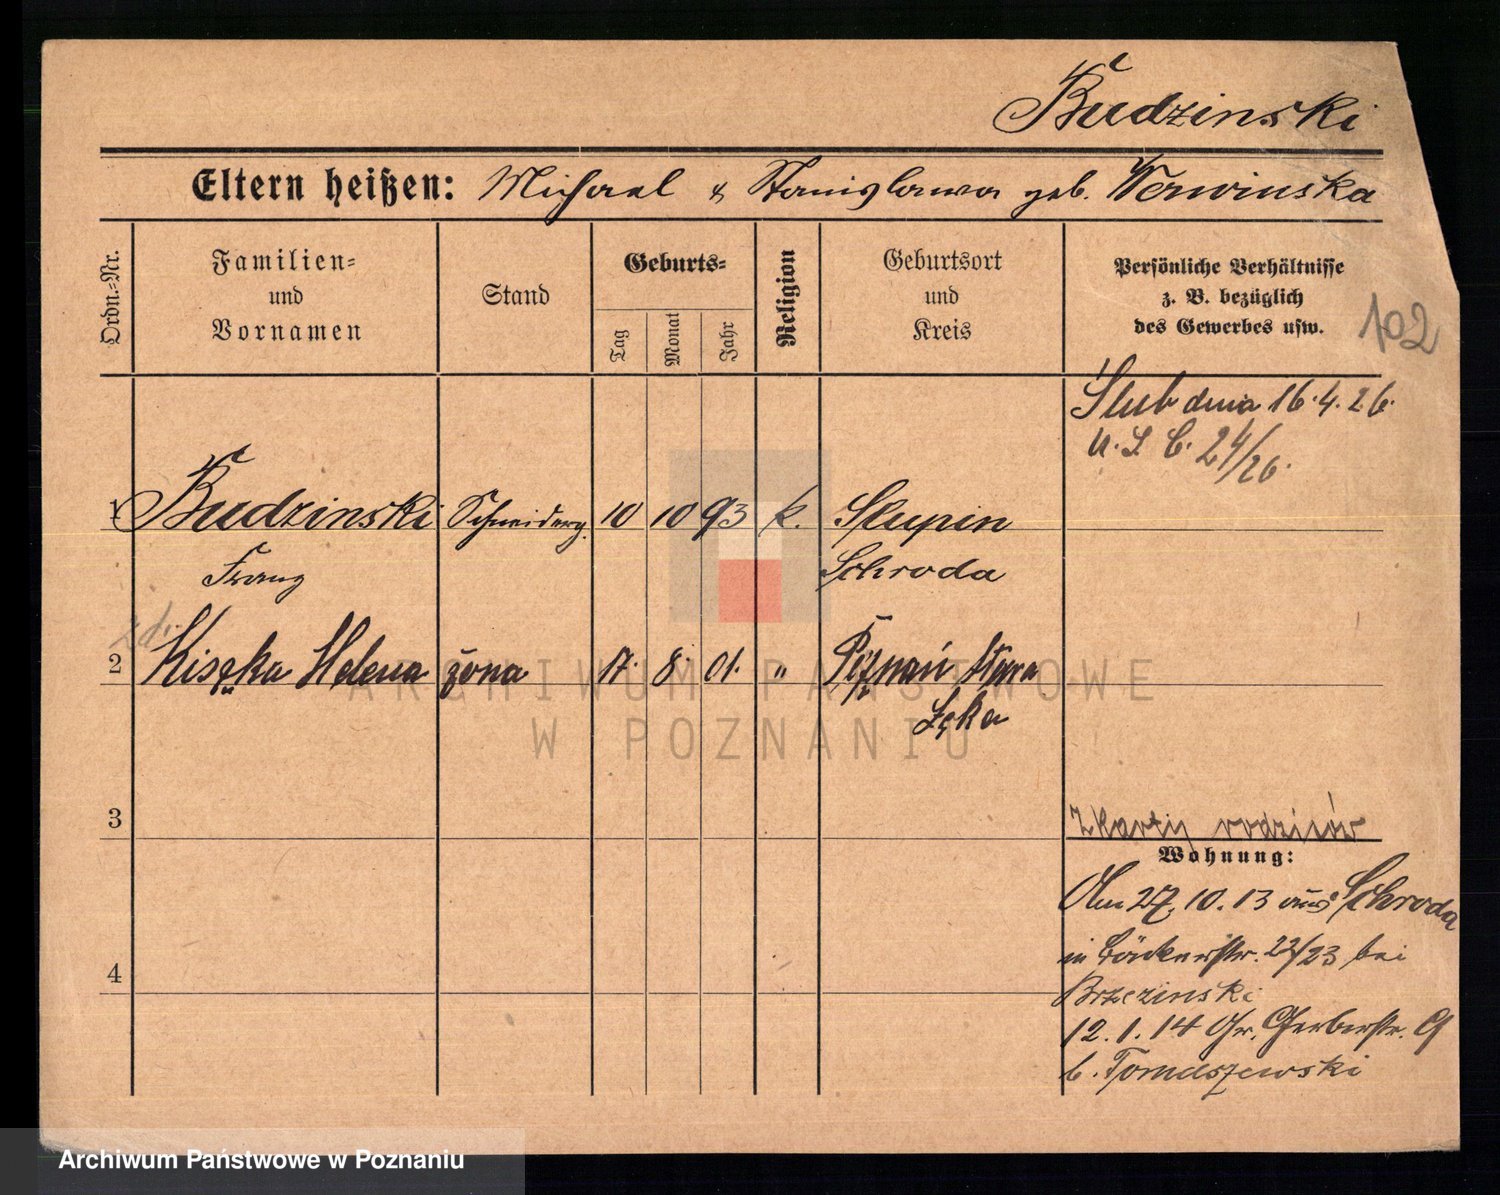 Budzinski
Eltern heißen: Michael & Stanislawa geb. Werwinska
Ordn.-Nr.
Familien-
und
Vornamen
Stand
Geburts-
Tag
Monat
Jahr
Religion
Geburtsort
und
Kreis
Persönliche Verhältnisse
z. B. bezüglich
des Gewerbes usw.
102
Ślub dnia 16.4.26.
U.S.C. 24/26.
1 Budzinski Schneiderg. 10 10 93 k. Slupin
Franz Schroda
2 Kiszka Helena żona 17. 8. 01. " Poznań
Łęka
3
Z karty rodziców
Wohnung:
Am 27.10.13 aus Schroda
in Bäckerstr. 22/23 bei
Brzezinski
12.1.14 Gr. Gerberstr. 9
b. Tomaszewski
4
ARCHIWUM PAŃSTWOWE
W POZNANIU
Archiwum Państwowe w Poznaniu